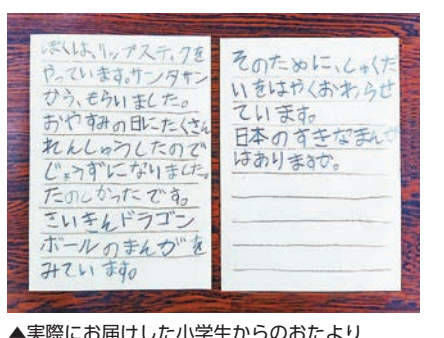 ぼくは、リップスティクを
やっています。サンタサン
から、もらいました。
おやすみの日にたくさん
れんしゅうしたので
じょうずになりました。
たのしかったです。
さいきんドラゴン
ボールのまんがを
みています。
そのために、しゅくだ
いをはやくおわらせ
ています。
日本のすきなまんが
はありますか。
▲実際にお届けした小学生からのおたより